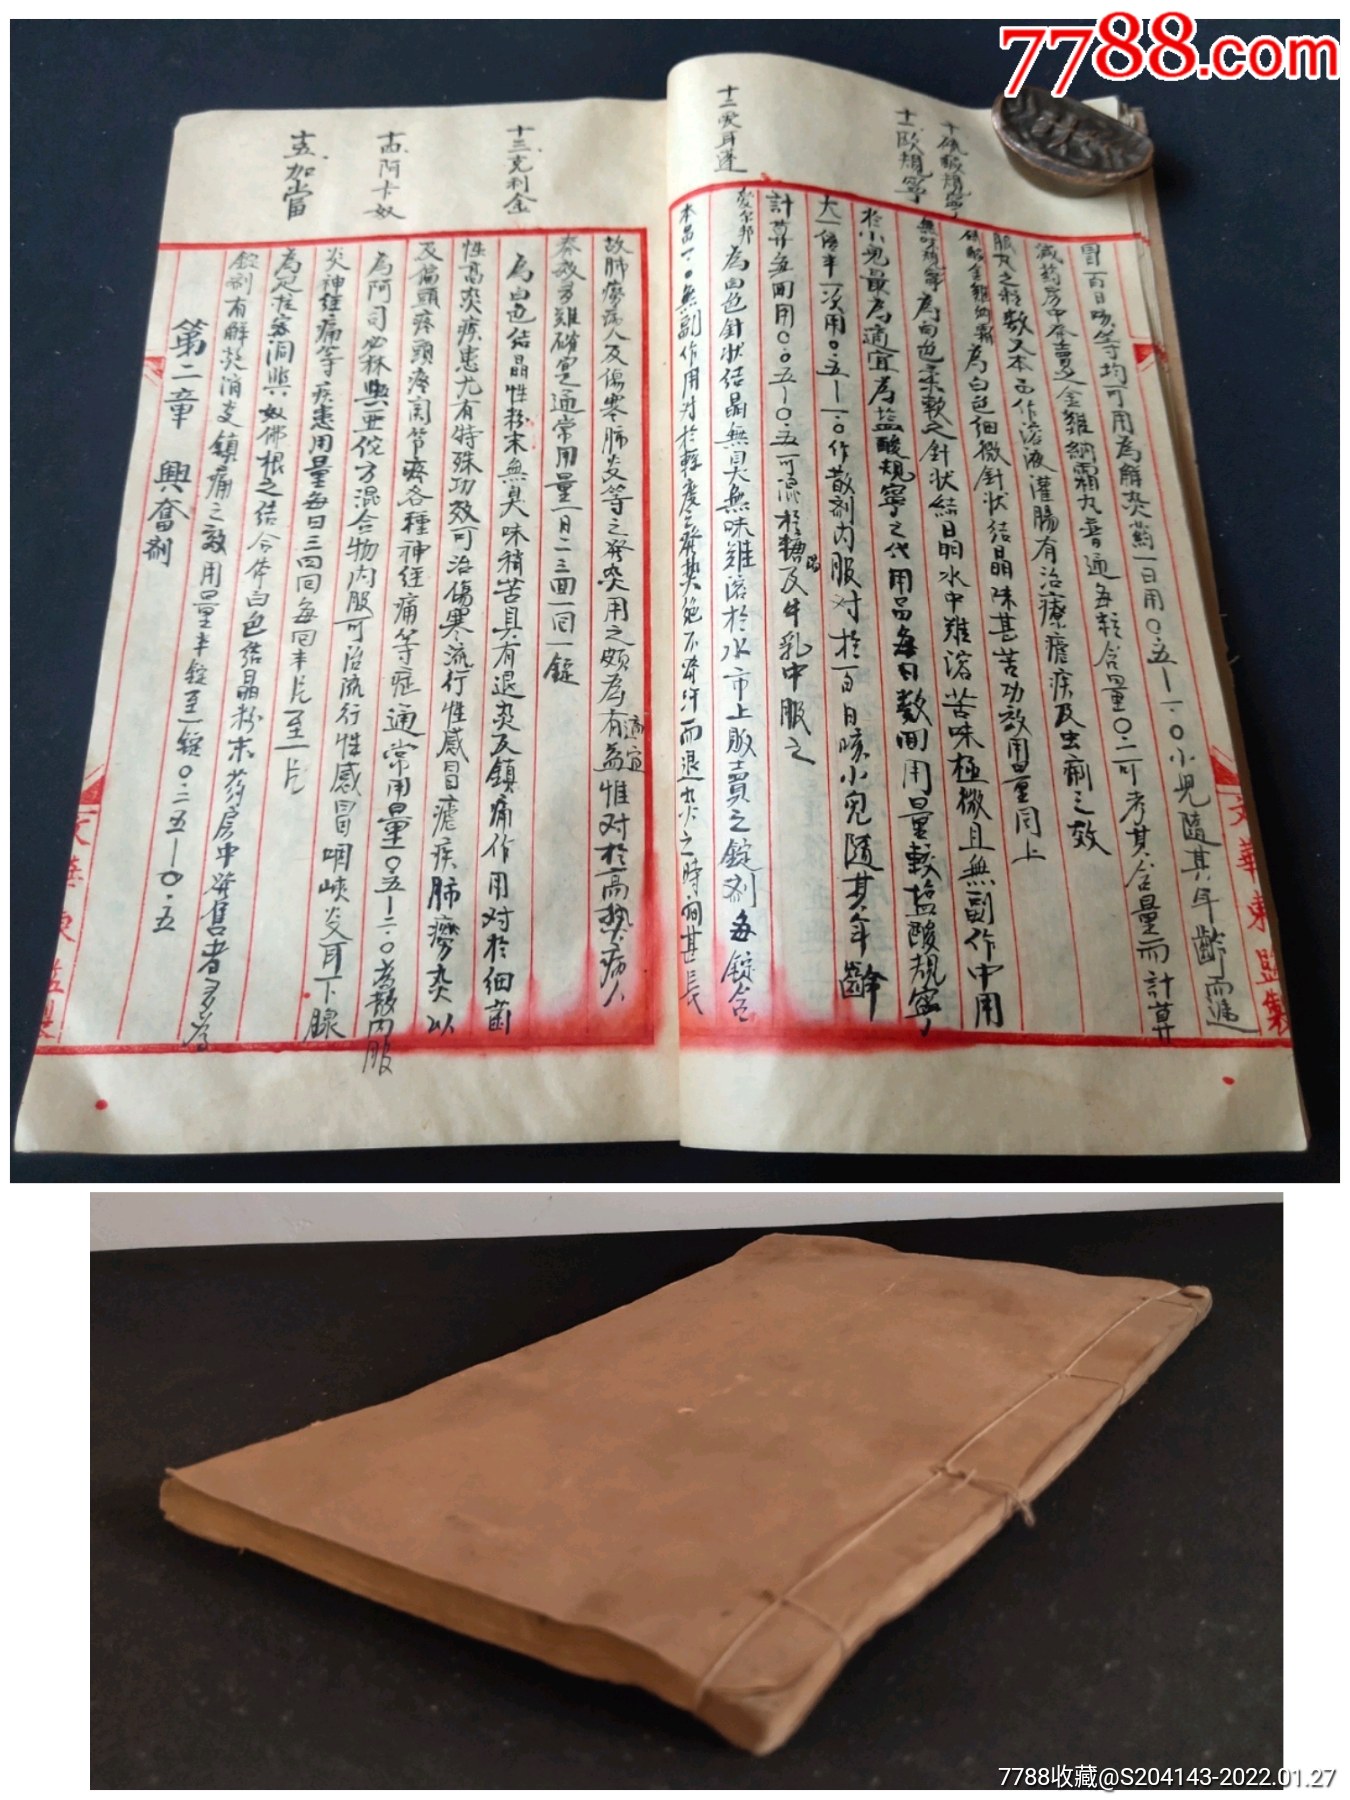 7788.com
十硫酸規寧
十一歐規寧
十二愛耳邁
冒百日咳等均可用為解熱藥一日用〇.五—一.〇小兒隨其年齡而遞
減药房中本賣之金雞納霜丸普通每粒含量〇.二可考其含量而計算
服丸之粒數又本品作溶液灌腸有治療瘧疾及虫痢之效
硫酸金雞納霜為白色細微針狀結晶味甚苦功效用量同上
無味規寧為白色柔軟之針狀結晶水中難溶苦味極微且無副作用
於小兒最為適宜為盐酸規寧之代用品每日數回用量較盐酸規寧
大一倍半一次用〇.五—一.〇作散剤内服对於百日咳小兒隨其年齡
計算每回用〇.〇五—〇.五可混於糖及牛乳中服之
愛尔邦為白色針狀結晶無臭無味難溶於水市上販賣之錠剤每錠含
本品一.〇無副作用对於輕度之發熱絕不發汗而退炎之時间甚長
文華東監製
十三克利金
十四阿卡奴
十五加當
故肺癆病人及傷寒肺炎等之發炎用之頗為有益惟对於高熱病人
適宜
奏效多難確定通常用量一日二三回一回一錠
為白色結晶性粉末無臭味稍苦具有退炎及鎮痛作用对於细菌
性高炎疾患尤有特殊功效可治傷寒流行性感冒瘧疾肺癆炎以
及偏頭疼頭疼関节疼各種神经痛等症通常用量〇.五—一.〇為散内服
為阿司必林與亚佗方混合物内服可治流行性感冒咽峽炎耳下腺
炎神经痛等疾患用量每日三四回每回半片至一片
為匹拉密洞與奴佛根之結合体白色結晶粉末药房中發售者多為
錠剤有解热消炎鎮痛之效用量半錠至一錠〇.二五—〇.五
第二章 興奮剤
7788收藏@S204143-2022.01.27